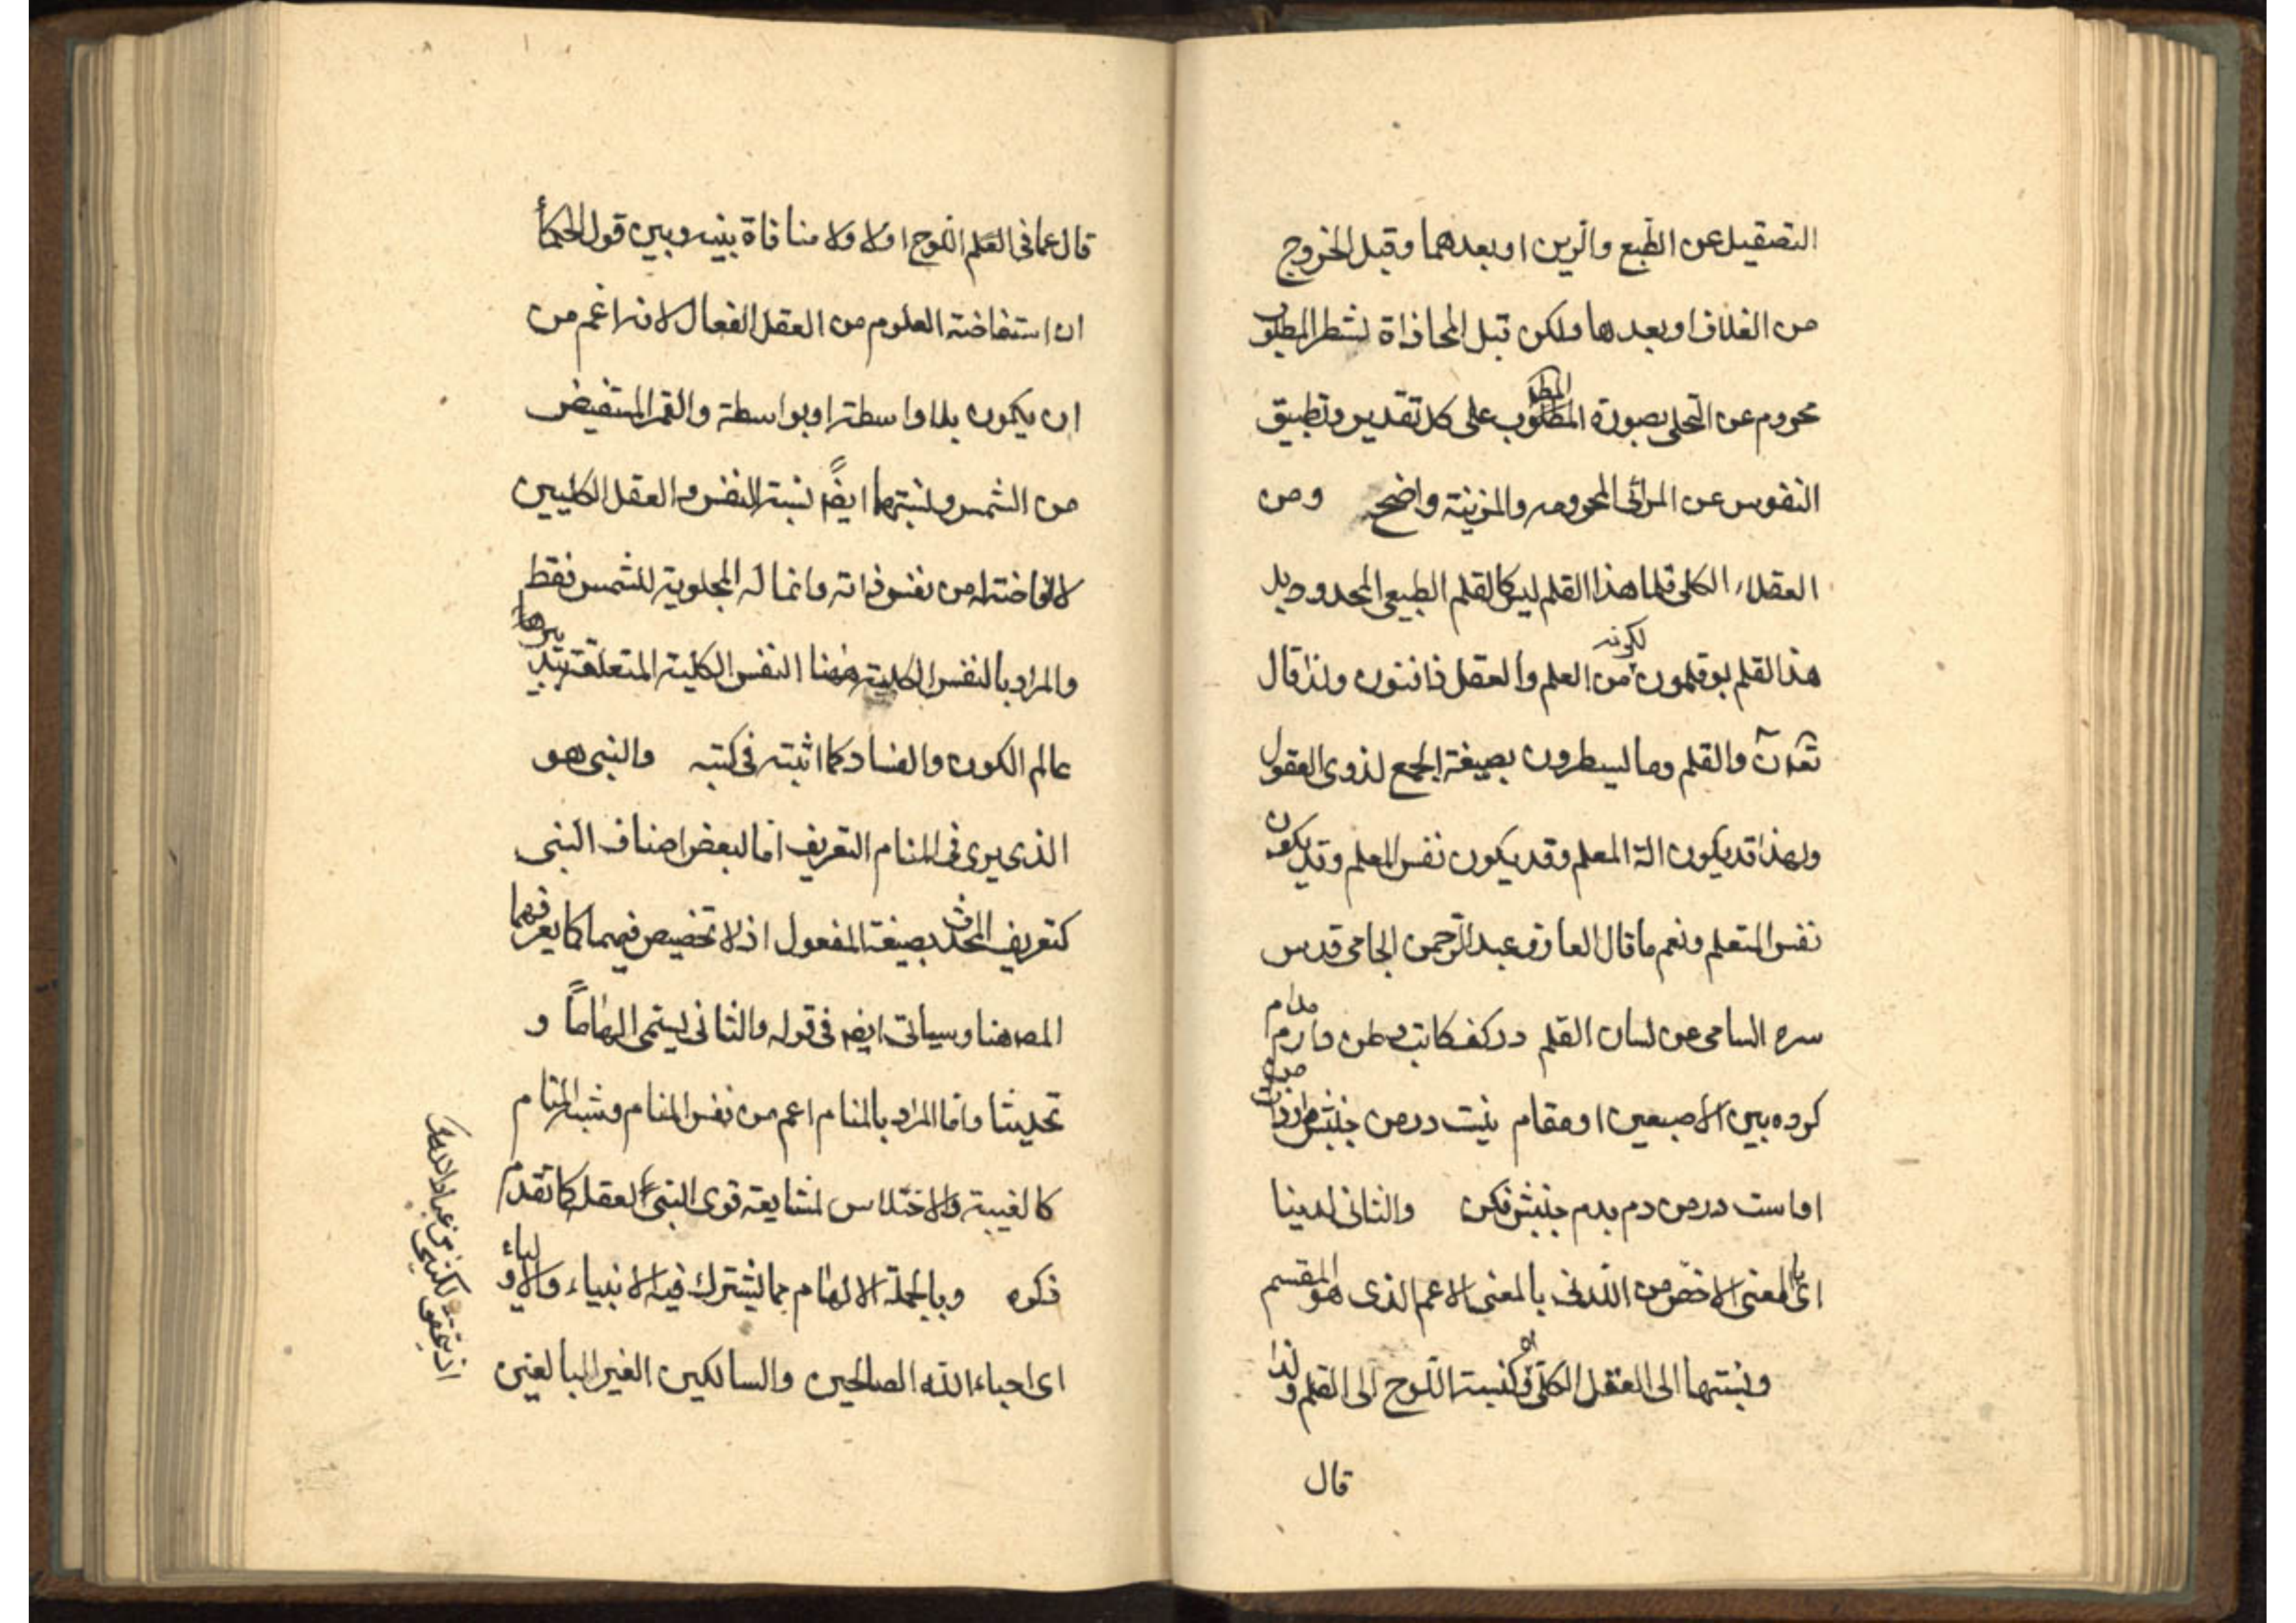 التصقيل عن الطبع والرين او بعدهما وقبل الخروج
من الغلاف او بعدها ولكن قبل المحاذاة لشطر المطلوب
محروم عن التحلى بصورة المطلوب على كل تقدير وتطبيق
النفوس عن المرائى المحرومه والمزينة واضح ومن
العقلاء الكلى قلما هذا القلم ليس كالقلم الطبيعى المحدود بل
هذا القلم بوقلمون لكونه من العلم والعقل ذا فنون ولذا قال
تعه ن والقلم وما يسطرون بصيغة الجمع لذوى العقول
ولهذا قد يكون الة المعلم وقد يكون نفس المعلم وقد يكون
نفس المتعلم ونعم ما قال العارف عبد الرحمن الجامى قدس
سره السامى عن لسان القلم در كف كاتب وطن دارم مدام
كرده بين الاصبعين او مقام نيست در من جنبش از ذات من
اوست در من دم بدم جنبش فكن والثانى لدينا
اى بالمعنى الاخص من اللدنى بالمعنى الاعم الذى هو المقسم
ونسبتها الى العقل الكلى كنسبة اللوح الى القلم ولذا
قال
قال عما فى القلم اللوح اولا ولا منافاة بينه وبين قول الحكمأ
ان استفاضة العلوم من العقل الفعال لانه اعم من
ان يكون بلا واسطة او بواسطة والقمر المستفيض
من الشمس ونسبتهما ايضً نسبة النفس والعقل الكليين
لا افاضة له من نفس ذاته وانما له المجلوية للشمس فقط
والمراد بالنفس الكلية ههنا النفس الكلية المتعلقة بتدبيرها
عالم الكون والفساد كما اثبته فى كتبه والنبى هو
الذى يرى فى المنام التعريف اما لبعض اصناف النبى
كتعريف المحدث بصيغة المفعول اذ لا تخصيص فيهما كما يعرفهما
المصه هنا وسياتى ايضه فى قوله والثانى يسمى الهاماً و
تحديثا واما المراد بالمنام اعم من نفس المنام وشبه المنام
كالغيبة والاختلاس لمشايعة قوى النبى العقل كما تقدم
ذكره وبالجملة الالهام مما يشترك فيه الانبياء والاولياء
اى احباء الله الصالحين والسالكين الغير البالغين